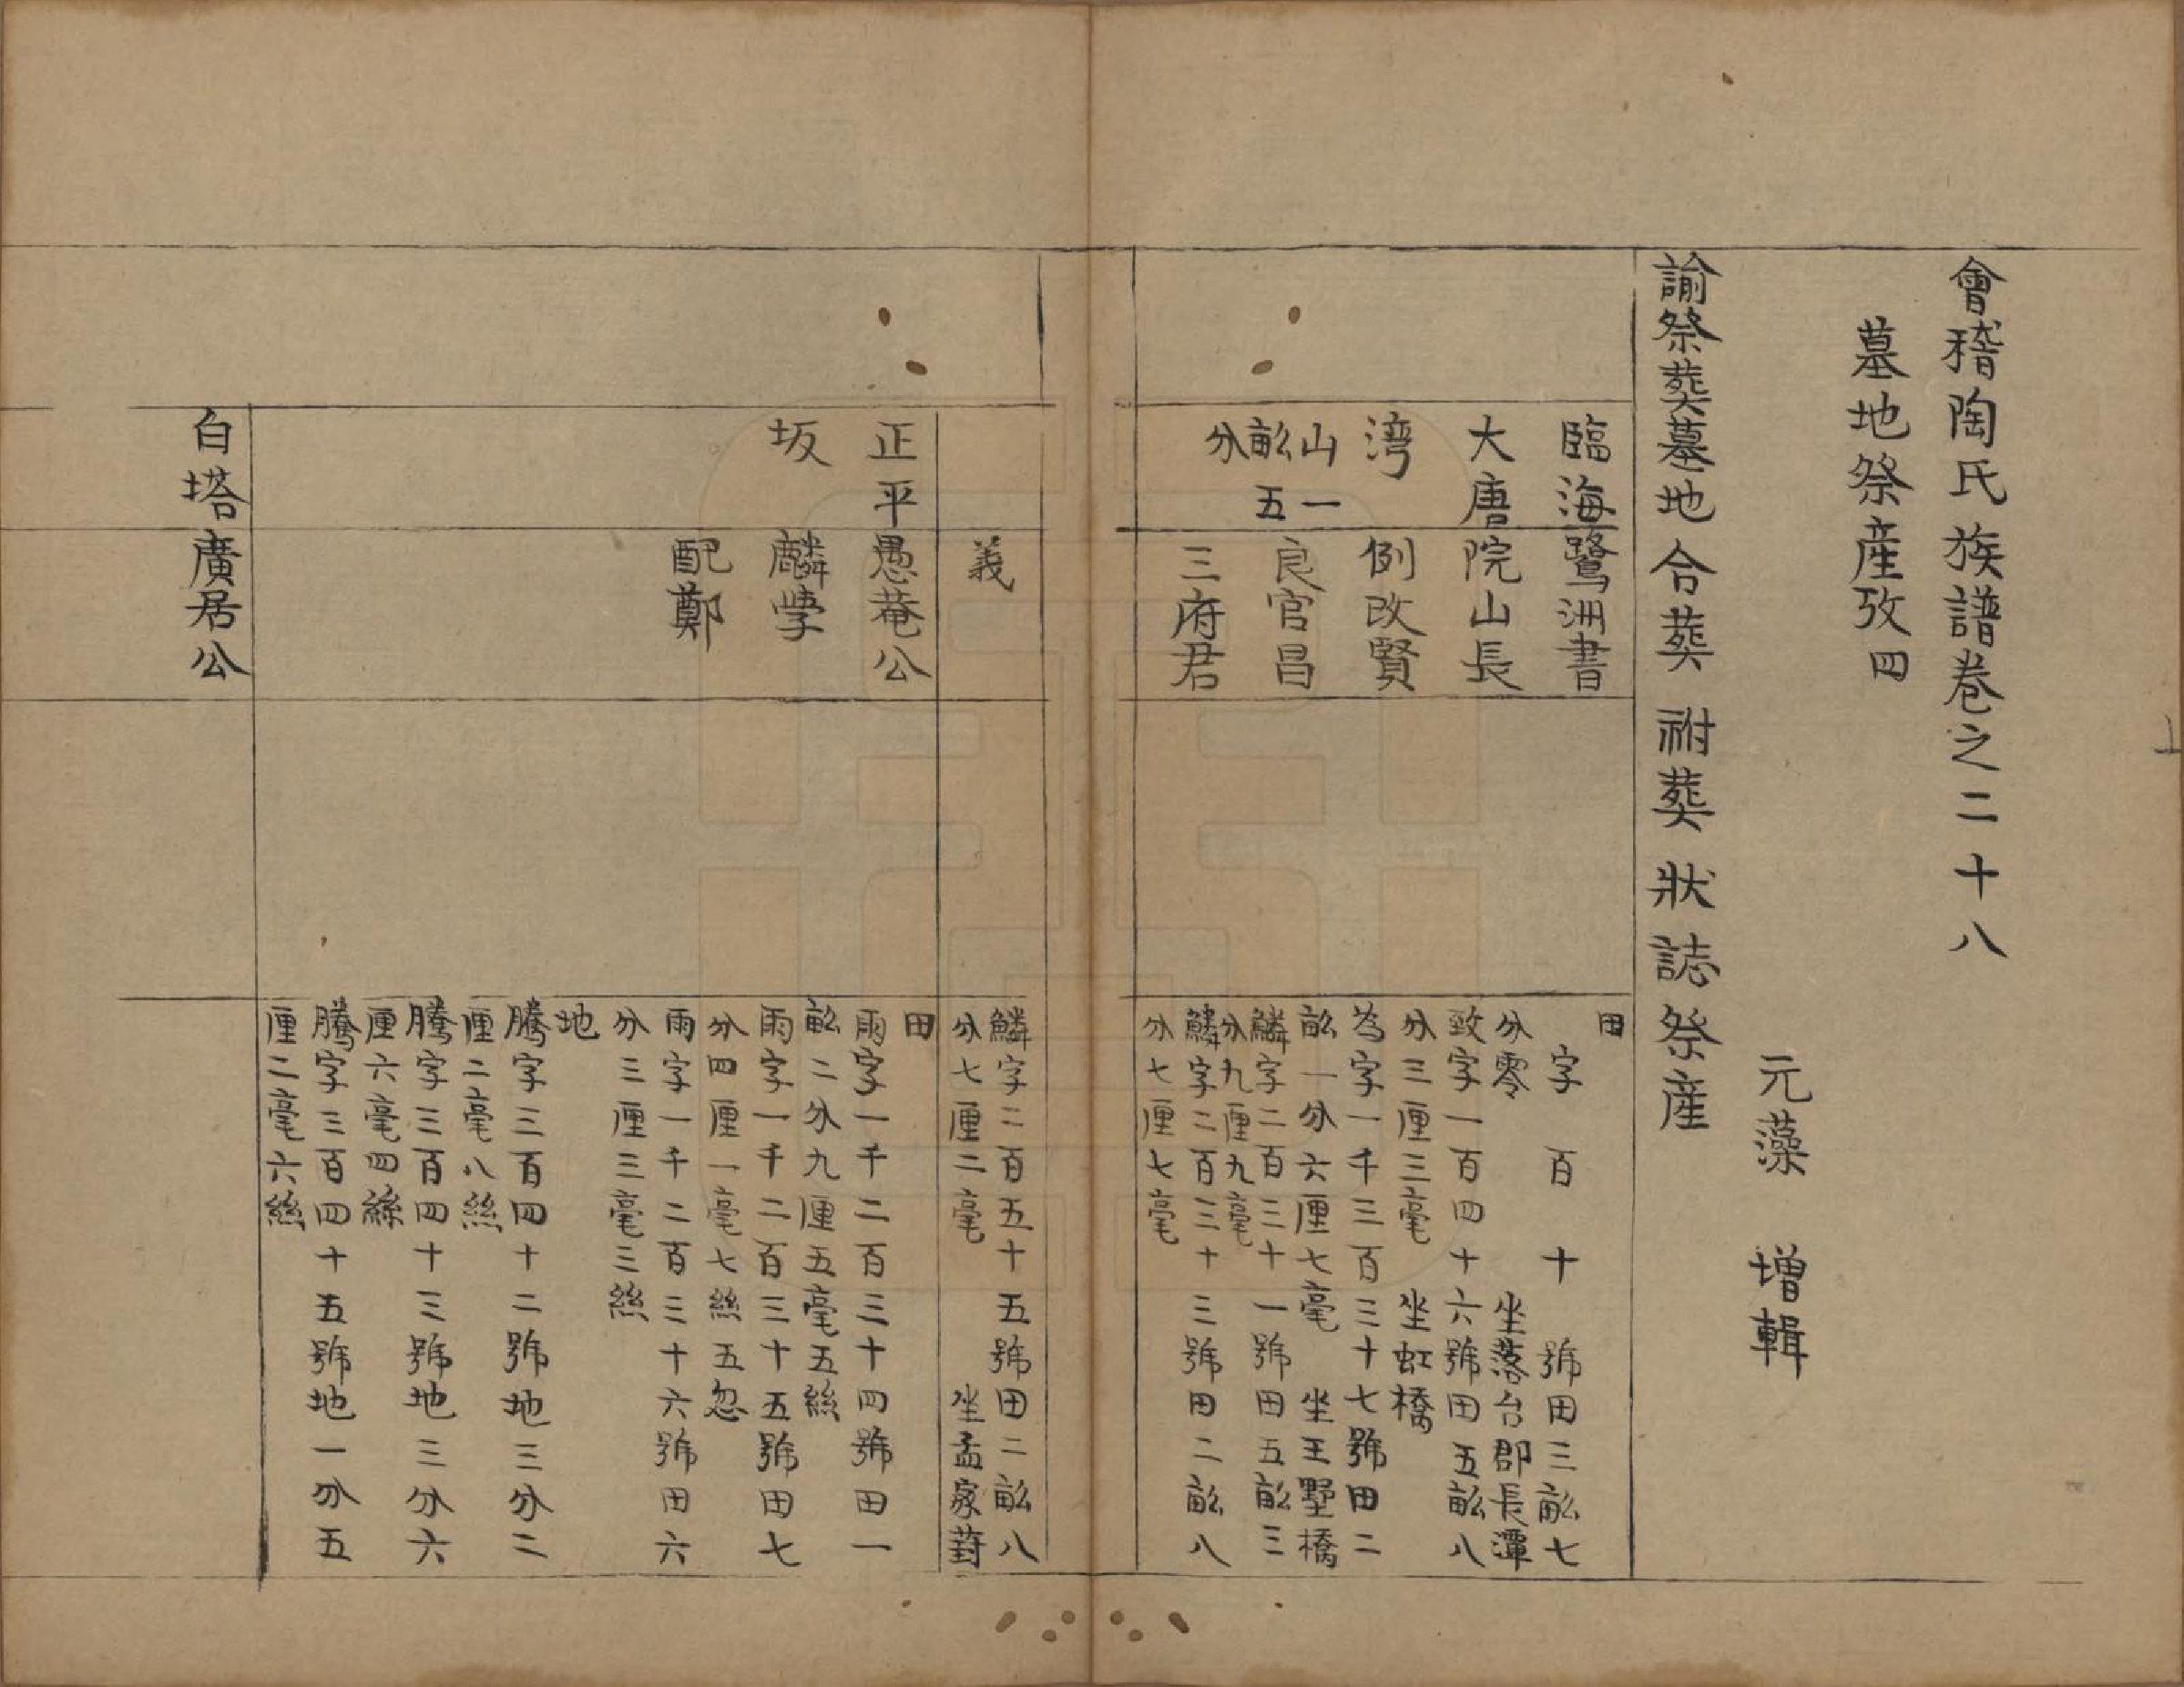 會稽陶氏族譜卷之二十八
墓地祭産攷四
元藻 增輯
諭祭葬墓地 合葬 祔葬 狀誌祭産
臨海
大唐
灣
山一
畝五
分
鷺洲書
院山長
例改賢
良官昌
三府君
田
字 百 十 號田三畝七
分零 坐落台郡長潭
致字一百四十六號田五畝八
分三厘三毫 坐虹橋
為字一千三百三十七號田二
畝一分六厘七毫 坐王墅橋
鱗字二百三十一號田五畝三
分九厘九毫
鱗字二百三十三號田二畝八
分七厘七毫
義
鱗字二百五十五號田二畝八
分七厘二毫 坐孟家葑
正平
坂
愚菴公
麟學
配鄭
田
雨字一千二百三十四號田一
畝二分九厘五毫五絲
雨字一千二百三十五號田七
分四厘一毫七絲五忽
雨字一千二百三十六號田六
分三厘三毫三絲
地
騰字三百四十二號地三分二
厘二毫八絲
騰字三百四十三號地三分六
厘六毫四絲
騰字三百四十五號地一分五
厘二毫六絲
白塔
廣居公